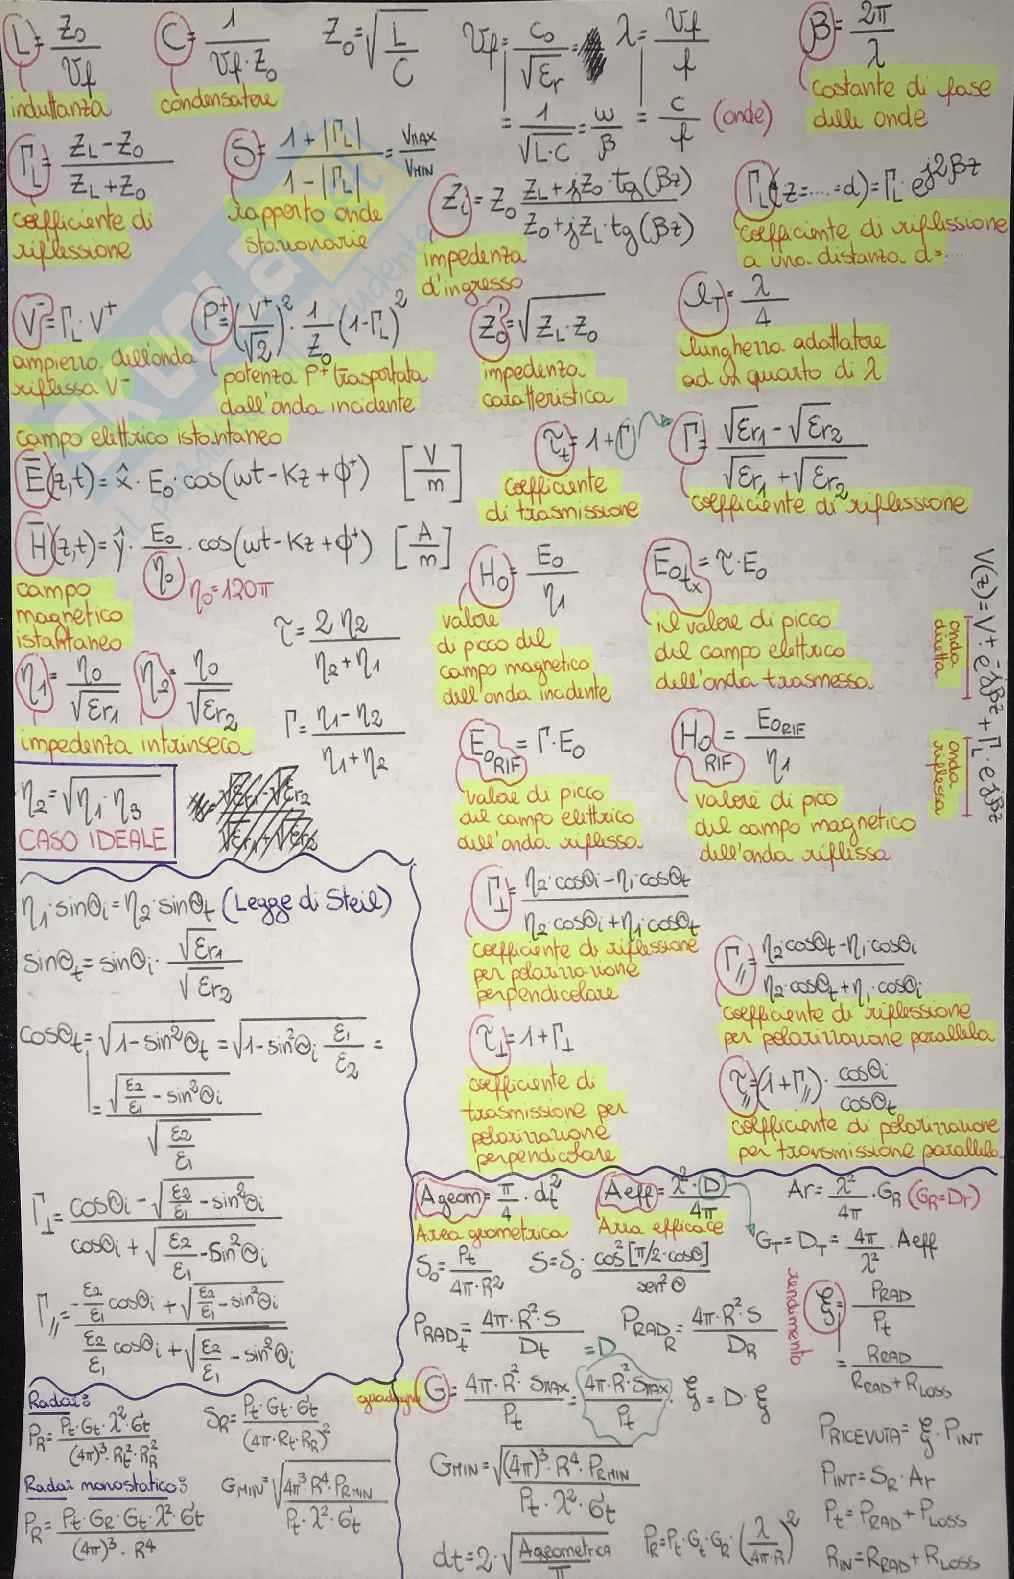 L = Z₀ / Vf
induttanza
C = 1 / (Vf · Z₀)
condensatore
Z₀ = √(L / C)
Vf = c₀ / √εr =
= 1 / √(L·C) = ω / β
λ = Vf / f
= c / f (onde)
β = 2π / λ
costante di fase
delle onde
Γ_L = (Z_L − Z₀) / (Z_L + Z₀)
coefficiente di
riflessione
S = (1 + |Γ_L|) / (1 − |Γ_L|) = V_MAX / V_MIN
rapporto onde
stazionarie
Z_i = Z₀ (Z_L + jZ₀ · tg(βz)) / (Z₀ + jZ_L · tg(βz))
impedenza
d'ingresso
Γ_L(z=....=d) = Γ_L · e^(j2βz)
coefficiente di riflessione
a una distanza d=....
V⁻ = Γ_L · V⁺
ampiezza dell'onda
riflessa V⁻
P⁺ = (V⁺ / √2)² · 1 / Z₀ (1 − Γ_L)²
potenza P⁺ trasportata
dall'onda incidente
Z₀' = √(Z_L · Z₀)
impedenza
caratteristica
ℓ_T = λ / 4
lunghezza adattatore
ad un quarto di λ
campo elettrico istantaneo
E̅(z,t) = x̂ · E₀ · cos(ωt − Kz + ϕ⁺) [V / m]
τ_t = 1 + Γ
coefficiente
di trasmissione
Γ = (√εr₁ − √εr₂) / (√εr₁ + √εr₂)
coefficiente di riflessione
H̅(z,t) = ŷ · E₀ / η₀ · cos(ωt − Kz + ϕ⁺) [A / m]
η₀ = 120π
campo
magnetico
istantaneo
H₀ = E₀ / η₁
valore
di picco del
campo magnetico
dell'onda incidente
E₀tx = τ · E₀
il valore di picco
del campo elettrico
dell'onda trasmessa
V(z) = V⁺ · e^(−jβz) + Γ_L · e^(jβz)
onda
diretta
onda
riflessa
τ = 2η₂ / (η₂ + η₁)
η₁ = η₀ / √εr₁
η₂ = η₀ / √εr₂
impedenza intrinseca
Γ = (η₁ − η₂) / (η₁ + η₂)
E₀RIF = Γ · E₀
valore di picco
del campo elettrico
dell'onda riflessa
H₀RIF = E₀RIF / η₁
valore di pico
del campo magnetico
dell'onda riflissa
η₂ = √(η₁ · η₃)
CASO IDEALE
η₁ · sinθi = η₂ · sinθt (Legge di Steil)
sinθt = sinθi · √εr₁ / √εr₂
cosθt = √(1 − sin²θt) = √(1 − sin²θi ε₁ / ε₂) =
= √(ε₂/ε₁ − sin²θi) / √(ε₂/ε₁)
Γ⊥ = (cosθi − √(ε₂/ε₁ − sin²θi)) / (cosθi + √(ε₂/ε₁ − sin²θi))
Γ∥ = (−ε₂/ε₁ cosθi + √(ε₂/ε₁ − sin²θi)) / (ε₂/ε₁ cosθi + √(ε₂/ε₁ − sin²θi))
Γ⊥ = (η₂ · cosθi − η₁ · cosθt) / (η₂ · cosθi + η₁ · cosθt)
coefficiente di riflessione
per polarizzazione
perpendicolare
Γ∥ = (η₂ cosθt − η₁ · cosθi) / (η₂ · cosθt + η₁ · cosθi)
coefficiente di riflessione
per polarizzazione parallela
τ⊥ = 1 + Γ⊥
coefficiente di
trasmissione per
polarizzazione
perpendicolare
τ∥ = (1 + Γ∥) · cosθi / cosθt
coefficiente di polarizzazione
per transmissione parallela
Ageom = π / 4 · dt²
Area geometrica
Aeff = λ² · D / 4π
Area efficace
Ar = λ² / 4π · G_R (G_R = Dr)
G_T = D_T = 4π / λ² · Aeff
S₀ = Pt / (4π · R²)
S = S₀ · cos²[π/2 · cosθ] / sen²θ
P_RADt = 4π · R² · S / Dt
P_RADR = 4π · R² · S / D_R
rendimento
ξ = P_RAD / Pt
= R_RAD / (R_RAD + R_LOSS)
= D
guadagno
G = 4π · R² · S_MAX / Pt = 4π · R² · S_MAX / Pt · ξ = D · ξ
Radar:
P_R = Pt · Gt · λ² · σt / ((4π)³ · Rt² · R_R²)
S_R = Pt · Gt · σt / (4π · Rt · R_R)²
Radar monostatico:
P_R = Pt · G_R · Gt · λ² · σt / ((4π)³ · R⁴)
G_MIN = √(4π³ · R⁴ · P_RMIN / (Pt · λ² · σt))
G_MIN = √((4π)³ · R⁴ · P_RMIN / (Pt · λ² · σt))
dt = 2 · √(Ageometrica / π)
P_R = Pt · Gt · G_R · (λ / 4π·R)²
P_RICEVUTA = ξ · P_INT
P_INT = S_R · Ar
Pt = P_RAD + P_LOSS
R_IN = R_RAD + R_LOSS